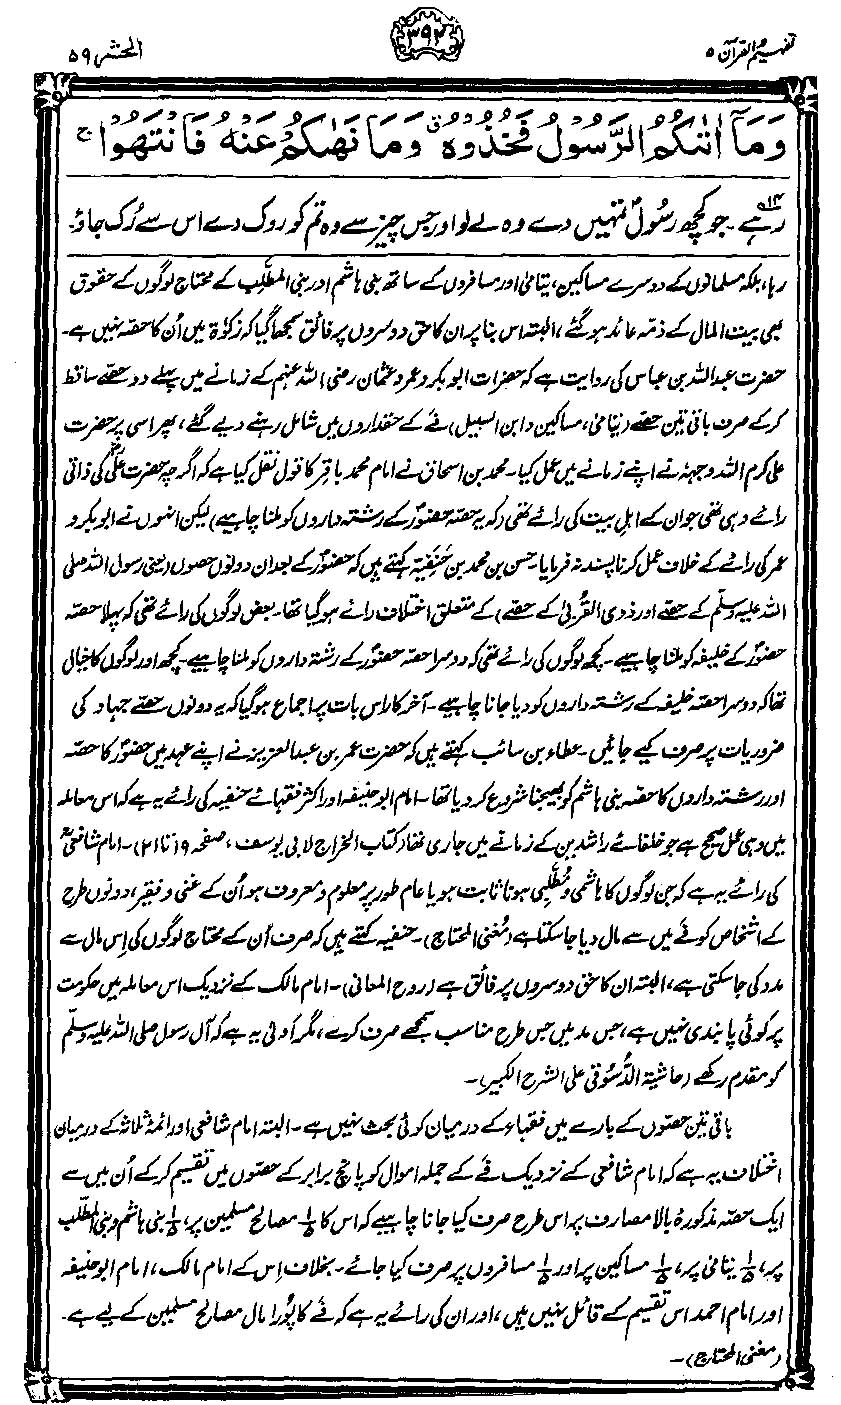 تفہیم القرآن ۵
۳۹۲
الحشر ۵۹
وَمَآ اٰتٰىكُمُ الرَّسُوْلُ فَخُذُوْهُ ۤ وَمَا نَهٰىكُمْ عَنْهُ فَانْتَهُوْا ۚ
رہے۔ ۱۴ جو کچھ رسولؐ تمہیں دے وہ لے لو اور جس چیز سے وہ تم کو روک دے اس سے رُک جاؤ۔
رہا، بلکہ مسلمانوں کے دوسرے مساکین، یتامیٰ اور مسافروں کے ساتھ بنی ہاشم اور بنی المطّلِب کے محتاج لوگوں کے حقوق
بھی بیت المال کے ذمّہ عائد ہو گئے، البتہ اس بنا پر ان کا حق دوسروں پر فائق سمجھا گیا کہ زکوٰۃ میں اُن کا حصّہ نہیں ہے۔
حضرت عبداللہ بن عباس کی روایت ہے کہ حضرات ابوبکر و عمر و عثمان رضی اللہ عنہم کے زمانے میں پہلے دو حصّے ساقط
کر کے صرف باقی تین حصّے (یتامیٰ، مساکین و ابن السبیل) فے کے حقداروں میں شامل رہنے دیے گئے، پھر اسی پر حضرت
علی کرم اللہ وجہہٗ نے اپنے زمانے میں عمل کیا۔ محمد بن اسحاق نے امام محمد باقر کا قول نقل کیا ہے کہ اگرچہ حضرت علیؓ کی ذاتی
رائے وہی تھی جو ان کے اہلِ بیت کی رائے تھی (کہ یہ حصّہ حضورؐ کے رشتہ داروں کو ملنا چاہیے) لیکن انہوں نے ابوبکر و
عمر کی رائے کے خلاف عمل کرنا پسند نہ فرمایا۔ حسن بن محمد بن حَنَفِیّہ کہتے ہیں کہ حضورؐ کے بعد ان دونوں حصوں (یعنی رسول اللہ صلی
اللہ علیہ وسلّم کے حصّے اور ذوی القُربیٰ کے حصّے) کے متعلق اختلاف رائے ہو گیا تھا۔ بعض لوگوں کی رائے تھی کہ پہلا حصّہ
حضورؐ کے خلیفہ کو ملنا چاہیے۔ کچھ لوگوں کی رائے تھی کہ دوسرا حصّہ حضورؐ کے رشتہ داروں کو ملنا چاہیے۔ کچھ اور لوگوں کا خیال
تھا کہ دوسرا حصّہ خلیفہ کے رشتہ داروں کو دیا جانا چاہیے۔ آخر کار اس بات پر اجماع ہو گیا کہ یہ دونوں حصّے جہاد کی
ضروریات پر صرف کیے جائیں۔ عطاء بن سائب کہتے ہیں کہ حضرت عمر بن عبدالعزیز نے اپنے عہد میں حضورؐ کا حصّہ
اور رشتہ داروں کا حصّہ بنی ہاشم کو بھیجنا شروع کر دیا تھا۔ امام ابو حنیفہ اور اکثر فقہائے حنفیہ کی رائے یہ ہے کہ اس معاملہ
میں وہی عمل صحیح ہے جو خلفائے راشدین کے زمانے میں جاری تھا (کتاب الخراج لابی یوسف، صفحہ ۱۹ تا ۲۱)۔ امام شافعیؒ
کی رائے یہ ہے کہ جن لوگوں کا ہاشمی و مُطّلِبی ہونا ثابت ہو یا عام طور پر معلوم و معروف ہو اُن کے غنی و فقیر، دونوں طرح
کے اشخاص کو فے میں سے مال دیا جا سکتا ہے (مُغنی المحتاج)۔ حنفیہ کہتے ہیں کہ صرف اُن کے محتاج لوگوں کی اِس مال سے
مدد کی جا سکتی ہے، البتہ ان کا حق دوسروں پر فائق ہے (روح المعانی)۔ امام مالک کے نزدیک اس معاملہ میں حکومت
پر کوئی پابندی نہیں ہے، جس مد میں جس طرح مناسب سمجھے صرف کرے، مگر اَولیٰ یہ ہے کہ آلِ رسول صلی اللہ علیہ وسلّم
کو مقدم رکھے (حاشیۃ الدُّسُوقی علی الشرح الکبیر)۔
باقی تین حصّوں کے بارے میں فقہاء کے درمیان کوئی بحث نہیں ہے۔ البتہ امام شافعی اور ائمۂ ثلاثہ کے درمیان
اختلاف یہ ہے کہ امام شافعی کے نزدیک فے کے جملہ اموال کو پانچ برابر کے حصّوں میں تقسیم کر کے اُن میں سے
ایک حصّہ مذکورۂ بالا مصارف پر اس طرح صرف کیا جانا چاہیے کہ اس کا ۱/۵ مصالح مسلمین پر، ۱/۵ بنی ہاشم و بنی المطلب
پر، ۱/۵ یتامیٰ پر، ۱/۵ مساکین پر اور ۱/۵ مسافروں پر صرف کیا جائے۔ بخلاف اِس کے امام مالک، امام ابو حنیفہ
اور امام احمد اس تقسیم کے قائل نہیں ہیں، اور ان کی رائے یہ ہے کہ فے کا پُورا مال مصالح مسلمین کے لیے ہے۔
(مغنی المحتاج)۔